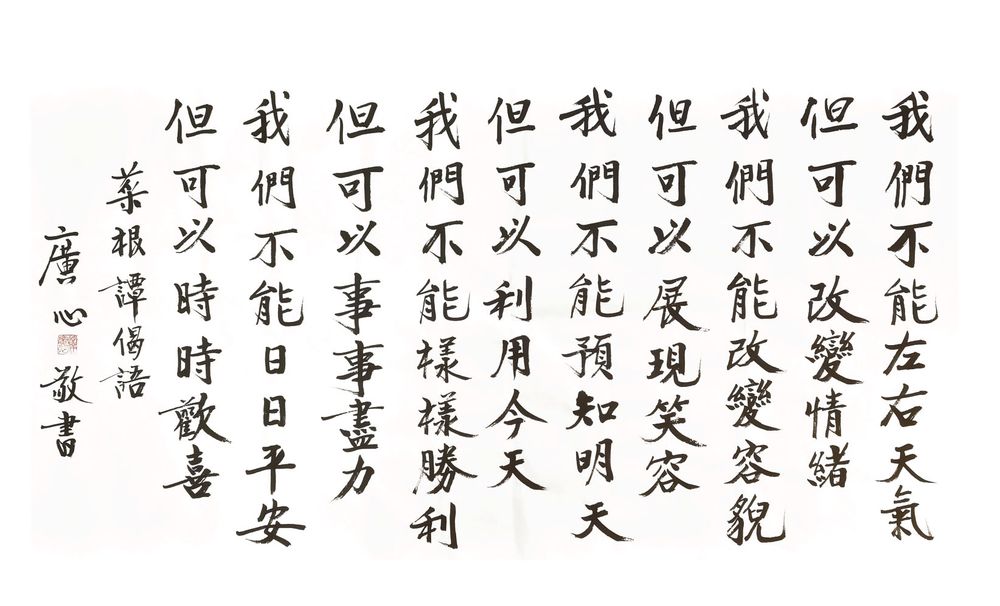 我們不能左右天氣
但可以改變情緒
我們不能改變容貌
但可以展現笑容
我們不能預知明天
但可以利用今天
我們不能樣樣勝利
但可以事事盡力
我們不能日日平安
但可以時時歡喜
菜根譚偈語
廣心敬書